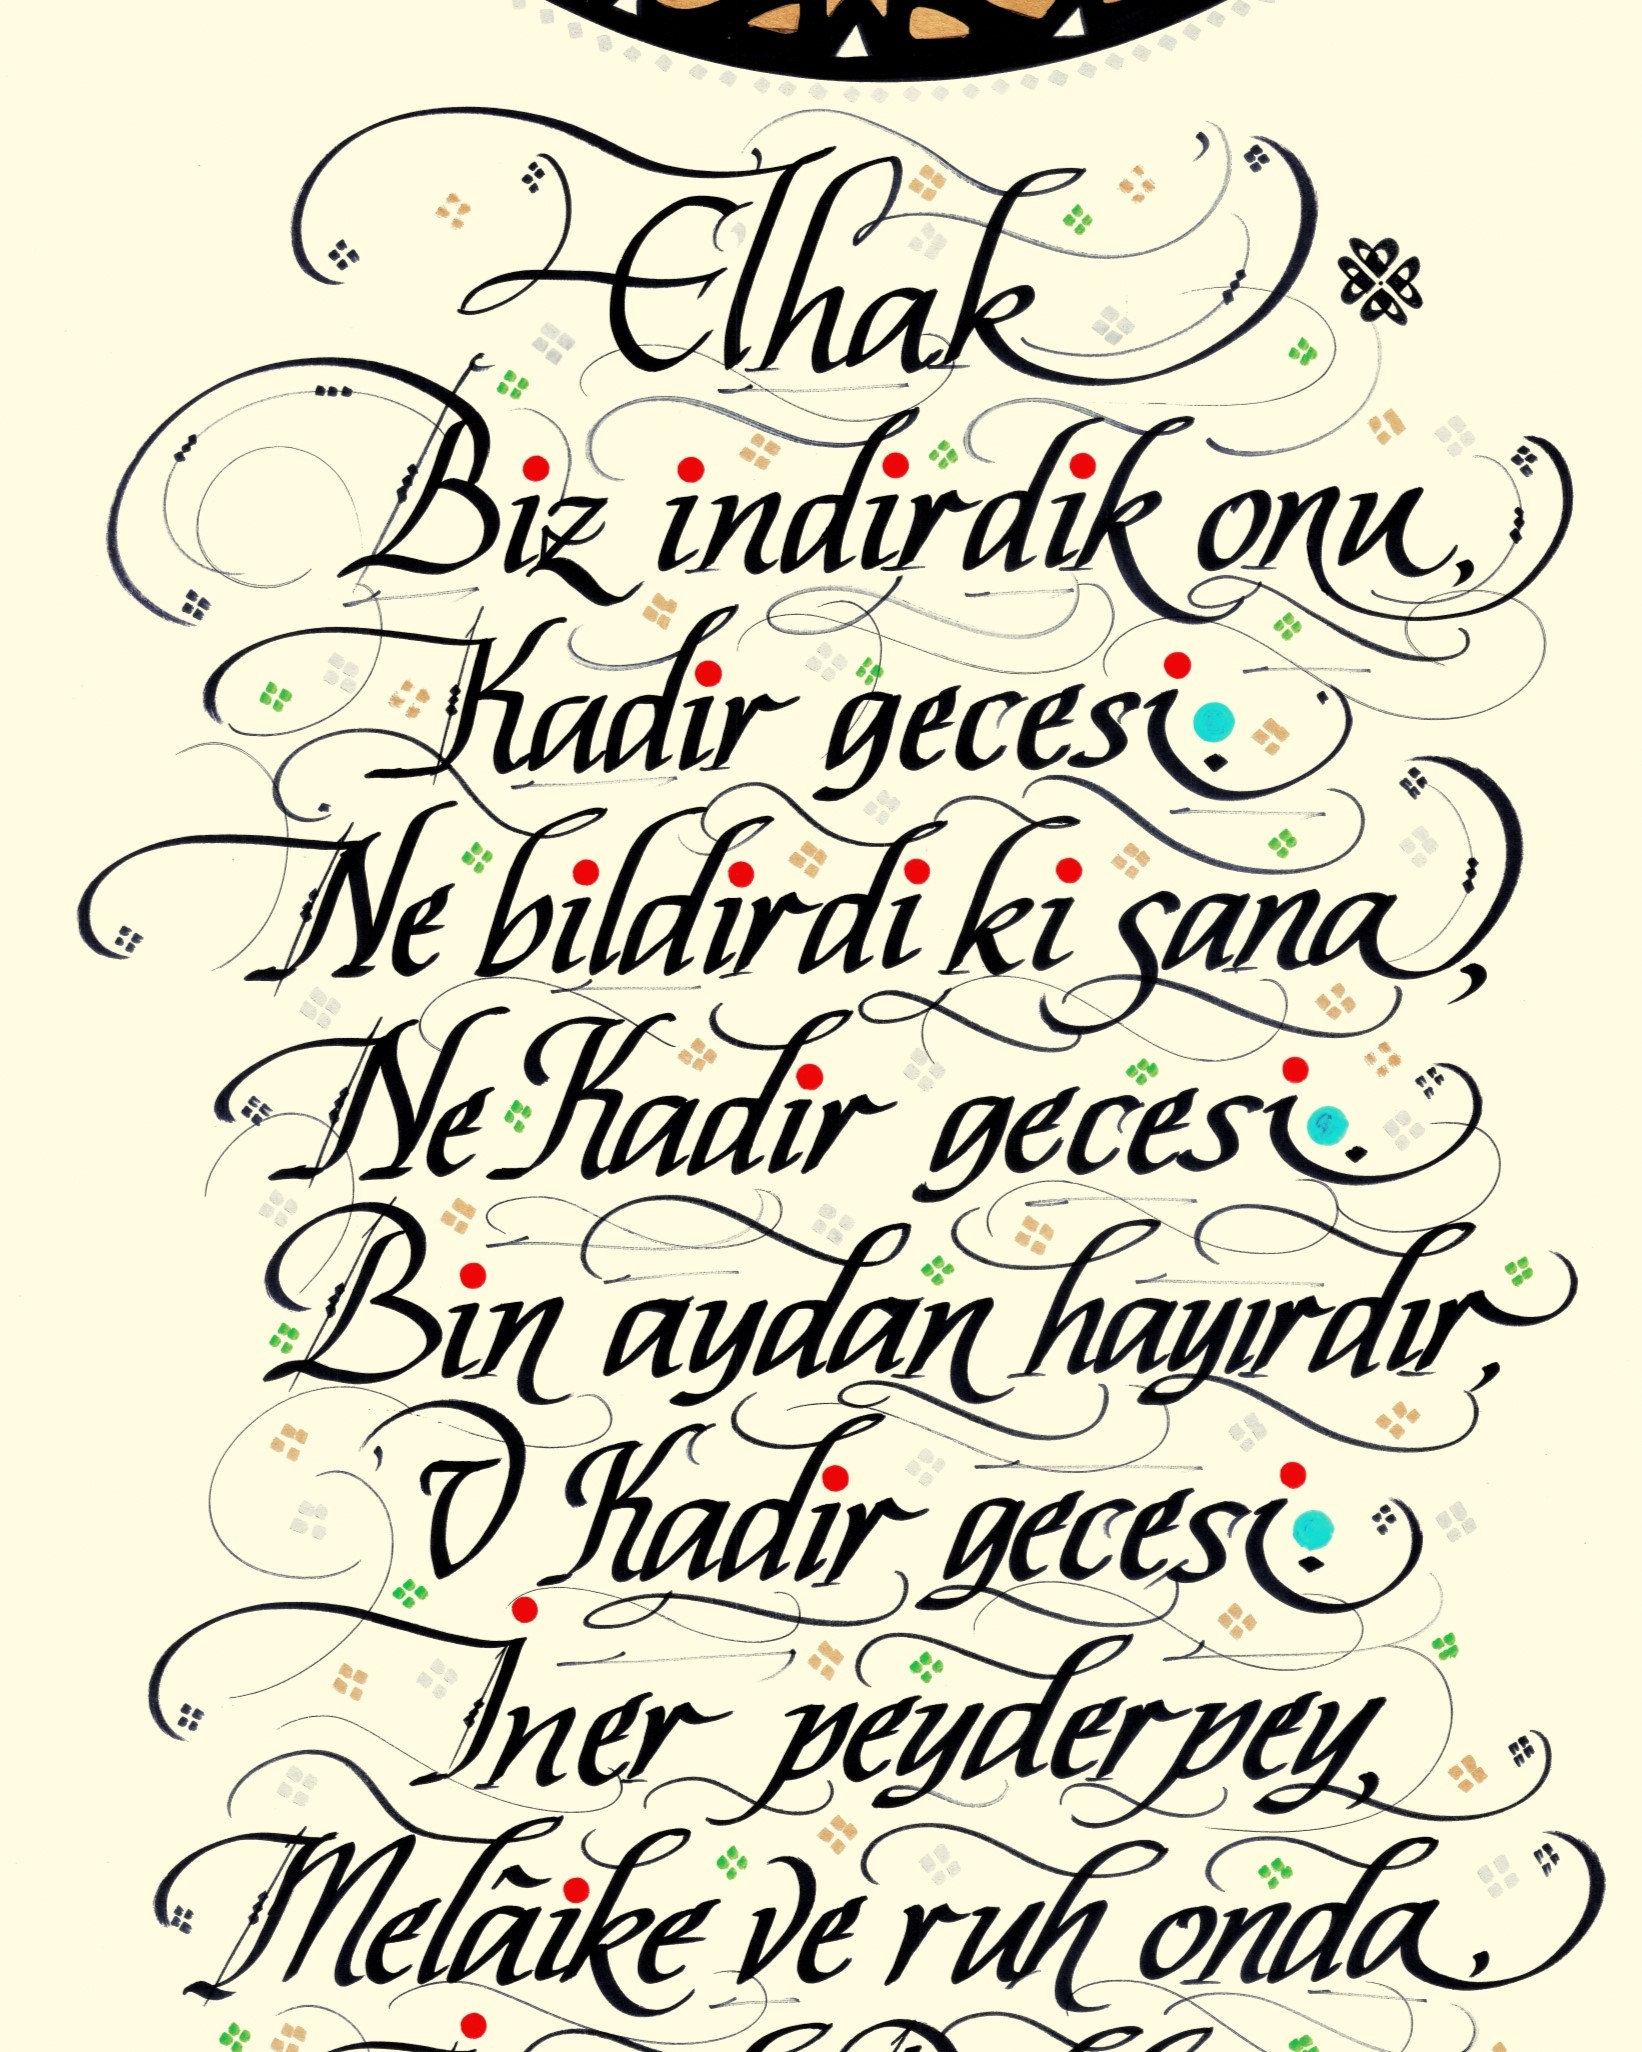 Elhak
Biz indirdik onu,
Kadir gecesi.
Ne bildirdi ki sana,
Ne Kadir gecesi.
Bin aydan hayırdır,
O Kadir gecesi.
İner peyderpey,
Melâike ve ruh onda.